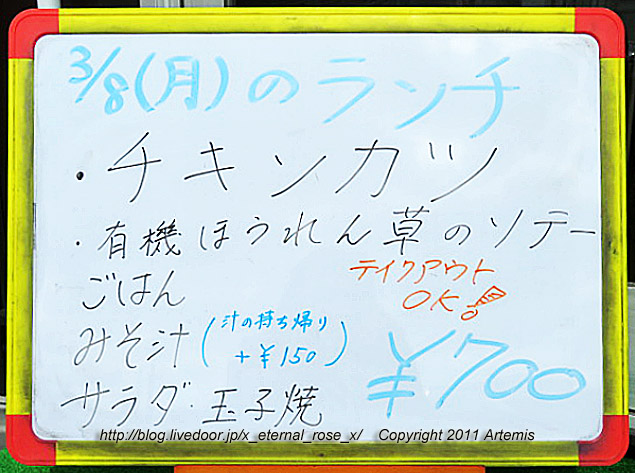 3/8(月)のランチ
・チキンカツ
・有機ほうれん草のソテー
ごはん
テイクアウト
OK!
みそ汁(汁の持ち帰り
+¥150)
サラダ・玉子焼
¥700
http://blog.livedoor.jp/x_eternal_rose_x/ Copyright 2011 Artemis